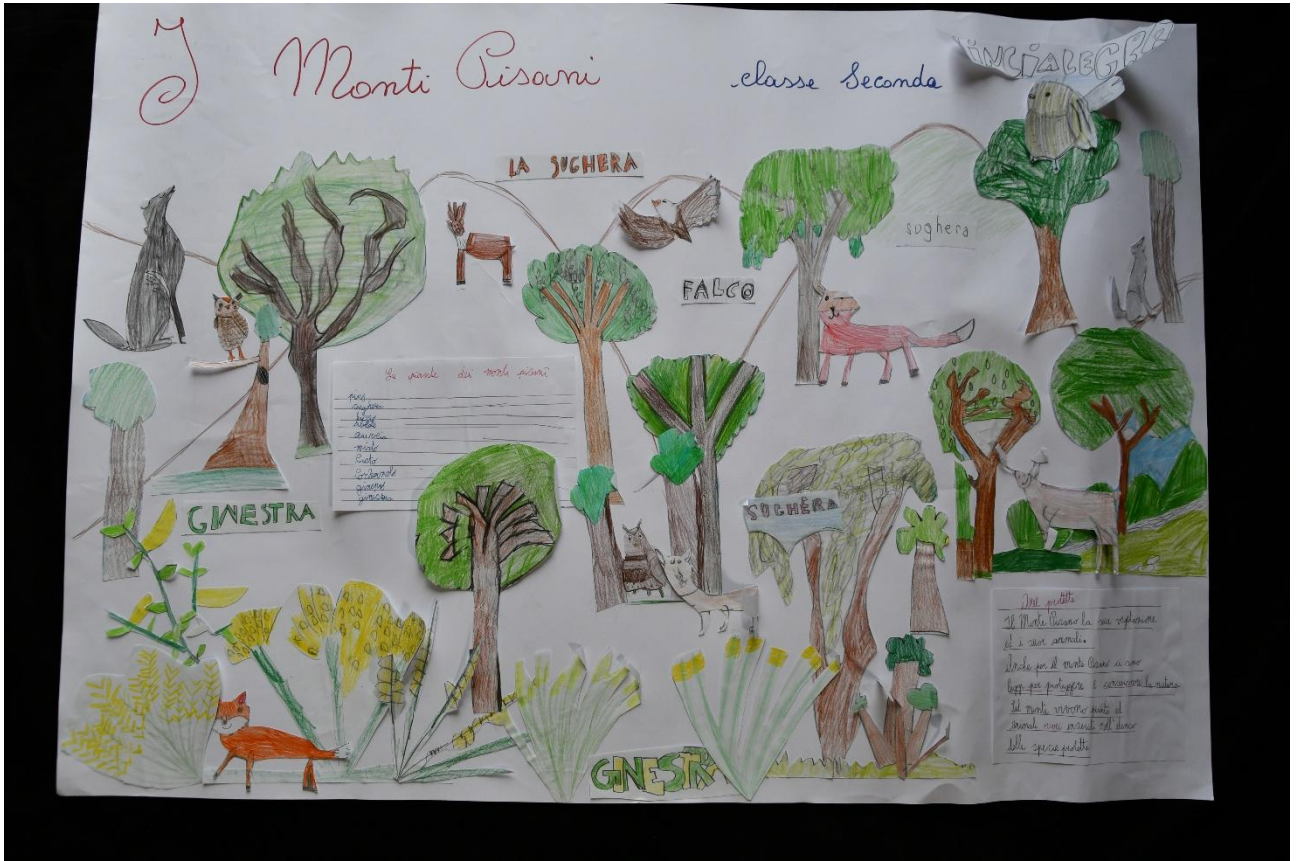 I Monti Pisani
classe Seconda
CINCIALEGRA
LA SUGHERA
sughera
FALCO
Le piante dei monti pisani
pino
sughera
mirto
Cisto
Corbezzolo
ginestra
GINESTRA
SUGHERA
Aree protette
Il Monte Pisano la sua vegetazione
ed i suoi animali.
Anche per il monte Pisano ci sono
leggi per proteggere e conservare la natura
Sul monte vivono piante ed
animali rari inseriti nell'elenco
delle specie protette
GINESTRA